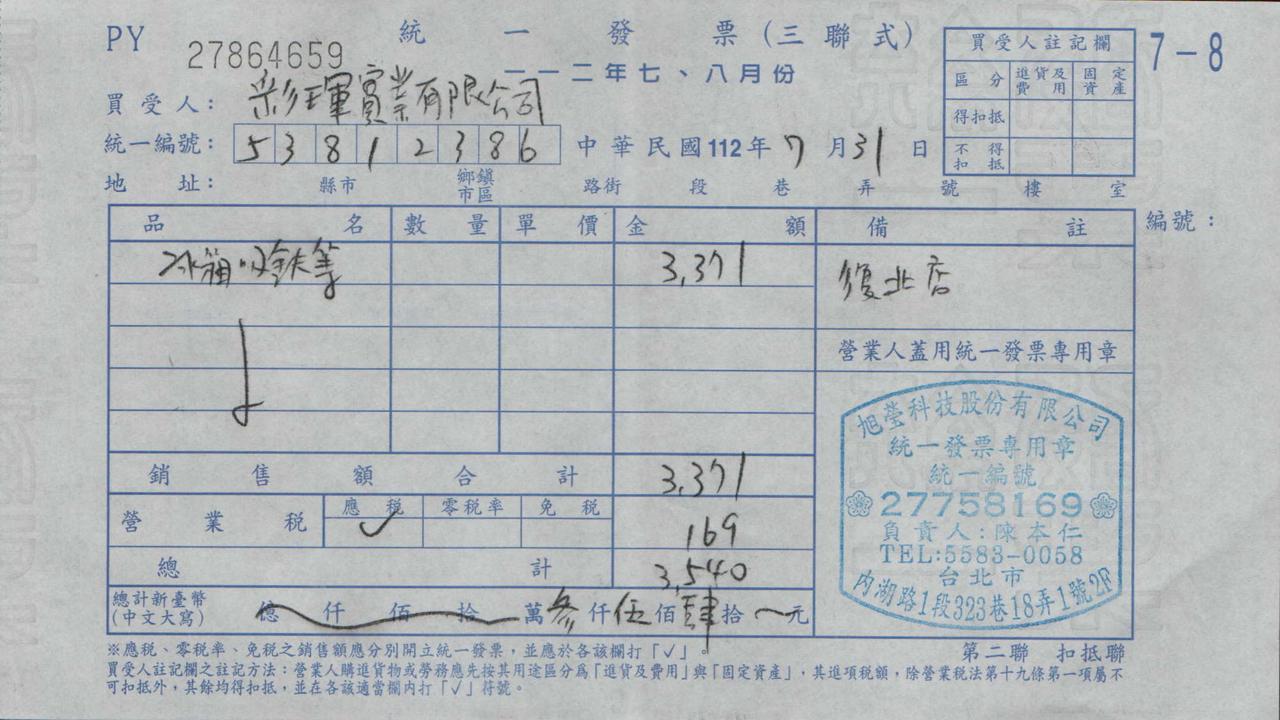 PY 27864659 統一發票(三聯式)
一一二年七、八月份
7-8
買受人註記欄
區分 進貨及費用 固定資產
得扣抵
不得扣抵
買受人:彩琿實業有限公司
統一編號: 53812386 中華民國112年7月31日
地址: 縣市 鄉鎮市區 路街 段 巷 弄 號 樓 室
品名 數量 單價 金額 備註 編號:
冰箱吸鐵等 3,371 復北店
營業人蓋用統一發票專用章
銷售額合計 3,371
營業稅 應稅 ✓ 零稅率 免稅 169
總計 3,540
總計新臺幣(中文大寫) 億仟佰拾萬參仟伍佰肆拾元
旭瑩科技股份有限公司
統一發票專用章
統一編號
27758169
負責人:陳本仁
TEL:5583-0058
台北市
內湖路1段323巷18弄1號2F
※應稅、零稅率、免稅之銷售額應分別開立統一發票,並應於各該欄打「✓」。
第二聯 扣抵聯
買受人註記欄之註記方法:營業人購進貨物或勞務應先按其用途區分為「進貨及費用」與「固定資產」,其進項稅額,除營業稅法第十九條第一項屬不
可扣抵外,其餘均得扣抵,並在各該適當欄內打「✓」符號。